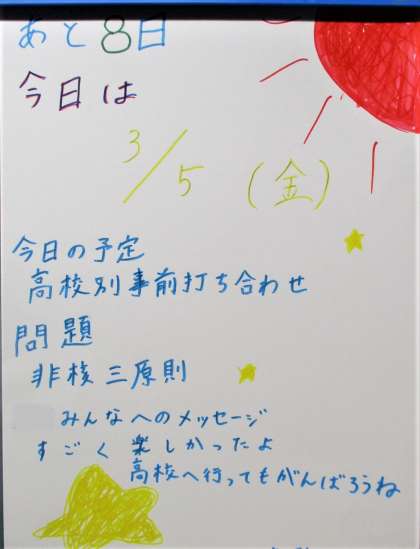 あと8日
今日は
3/5 (金)
今日の予定
高校別事前打ち合わせ
問題
非核三原則
みんなへのメッセージ
すごく楽しかったよ
高校へ行ってもがんばろうね